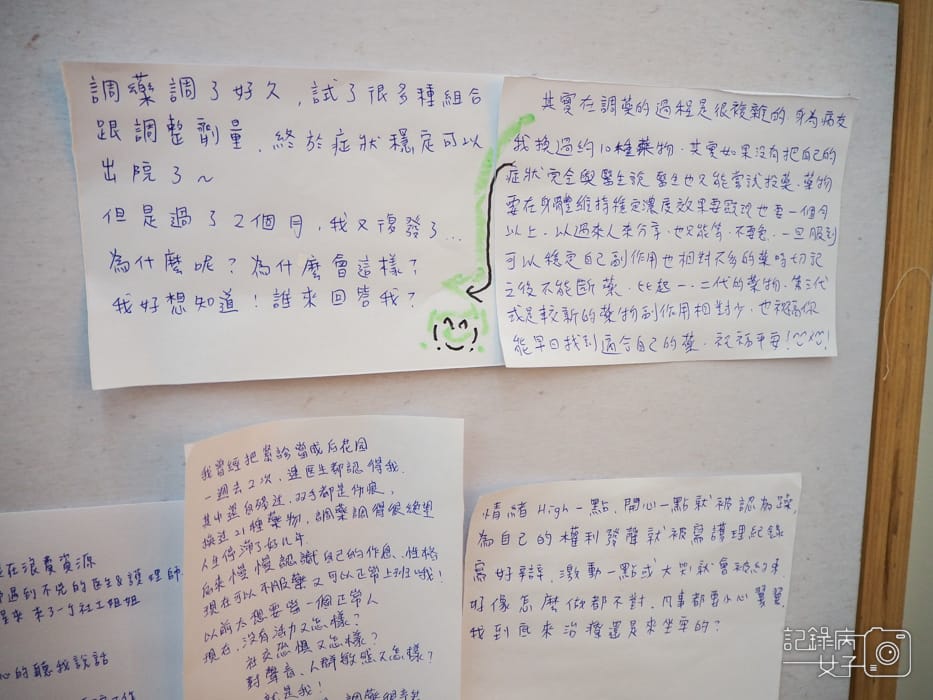 調藥調了好久,試了很多種組合
跟調整劑量,終於症狀穩定可以
出院了~
但是過了2個月,我又復發了...
為什麼呢?為什麼會這樣?
我好想知道!誰來回答我?
其實在調藥的過程是很複雜的,身為病友
我換過約10種藥物,其實如果沒有把自己的
症狀完全與醫生說,醫生也只能嘗試投藥,藥物
要在身體維持穩定濃度效果要顯現也要一個月
以上,以過來人來分享,也只能等,不要急,一旦服到
可以穩定自己副作用也相對不多的藥時切記
之後不能斷藥,比起一、二代的藥物,第三代
或是較新的藥物副作用相對少,也祝福你
能早日找到適合自己的藥,祝福平安!
我曾經把急診當成后花園
一週去2次,連醫生都認得我,
其中還自殺過,双手都是傷痕,
換過21種藥物,調藥調得很絕望
人生停滯了好几年
后來慢慢認識自己的作息、性格
現在可以不服藥又可以正常上班了哦!
以前太想要當一個正常人
現在,沒有活力又怎樣?
社交恐懼又怎樣?
對聲音、人群敏感又怎樣?
就是我!
情緒High一點、開心一點就被認為躁,
為自己的權利發聲就被寫護理紀錄
寫好辯,激動一點或大哭就會被約束
好像怎麼做都不對,凡事都要小心翼翼,
我到底來治療還是來坐牢的?
在浪費資源
遇到不兇的醫生&護理師
來了一個社工姐姐
心的聽我說話
記錄病
女子